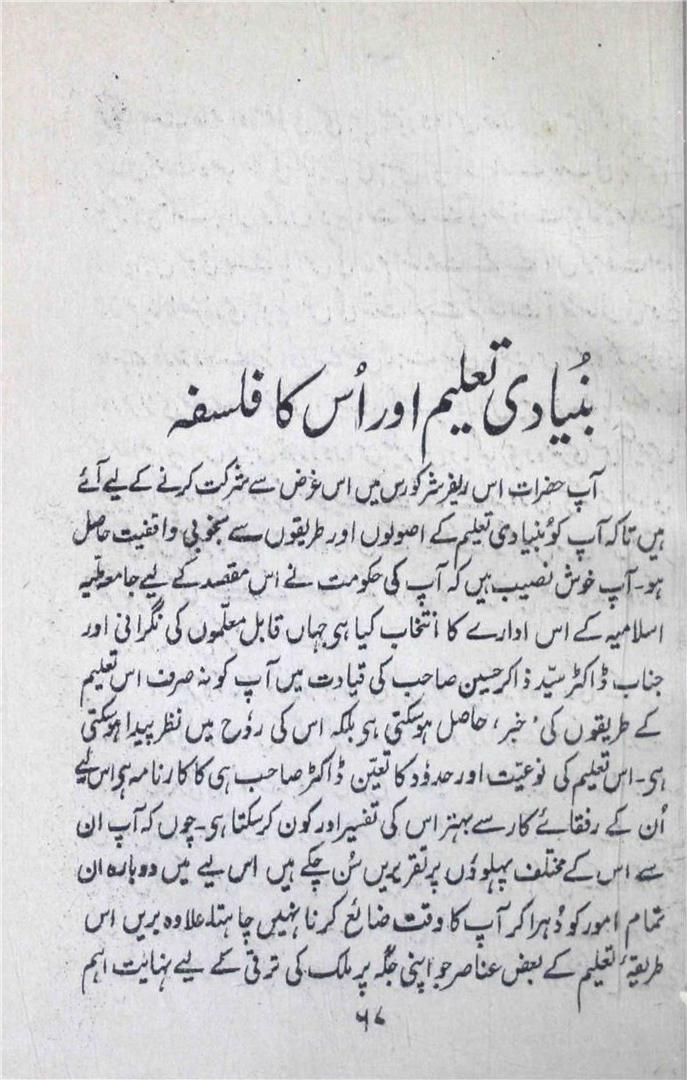 بُنیادی تعلیم اور اُس کا فلسفہ
آپ حضرات اس ریفرشر کورس میں اس غرض سے شرکت کرنے کے لیے آئے
ہیں تاکہ آپ کو بُنیادی تعلیم کے اصولوں اور طریقوں سے بخوبی واقفیت حاصل
ہو۔ آپ خوش نصیب ہیں کہ آپ کی حکومت نے اس مقصد کے لیے جامعہ ملّیہ
اسلامیہ کے اس ادارے کا انتخاب کیا ہی جہاں قابل معلّموں کی نگرانی اور
جناب ڈاکٹر سیّد ذاکر حسین صاحب کی قیادت میں آپ کو نہ صرف اس تعلیم
کے طریقوں کی ’خبر‘ حاصل ہوسکتی ہی بلکہ اس کی روٗح میں نظر پیدا ہوسکتی
ہی۔ اس تعلیم کی نوعیّت اور حدوٗد کا تعیّن ڈاکٹر صاحب ہی کا کارنامہ ہی اس لیے
اُن کے رفقائے کار سے بہتر اس کی تفسیر اور کون کرسکتا ہی۔ چوں کہ آپ ان
سے اس کے مختلف پہلوؤں پر تقریریں سُن چکے ہیں اس لیے میں دوبارہ ان
تمام امور کو دُہرا کر آپ کا وقت ضائع کرنا نہیں چاہتا۔ علاوہ بریں اس
طریقۂ تعلیم کے بعض عناصر جو اپنی جگہ پر ملک کی ترقی کے لیے نہایت اہم
۶۷